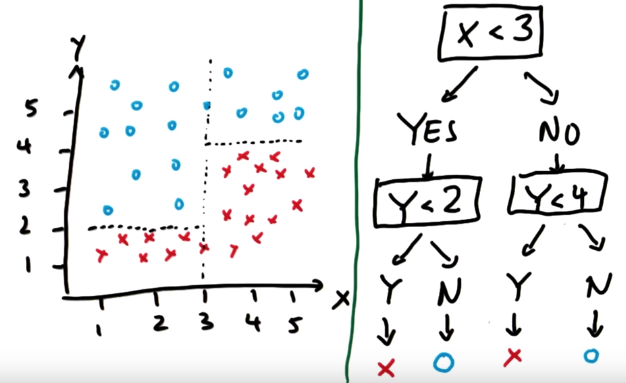 Y
5
4
3
2
1
1 2 3 4 5 X
X < 3
YES NO
Y < 2 Y < 4
Y N Y N
X O X O